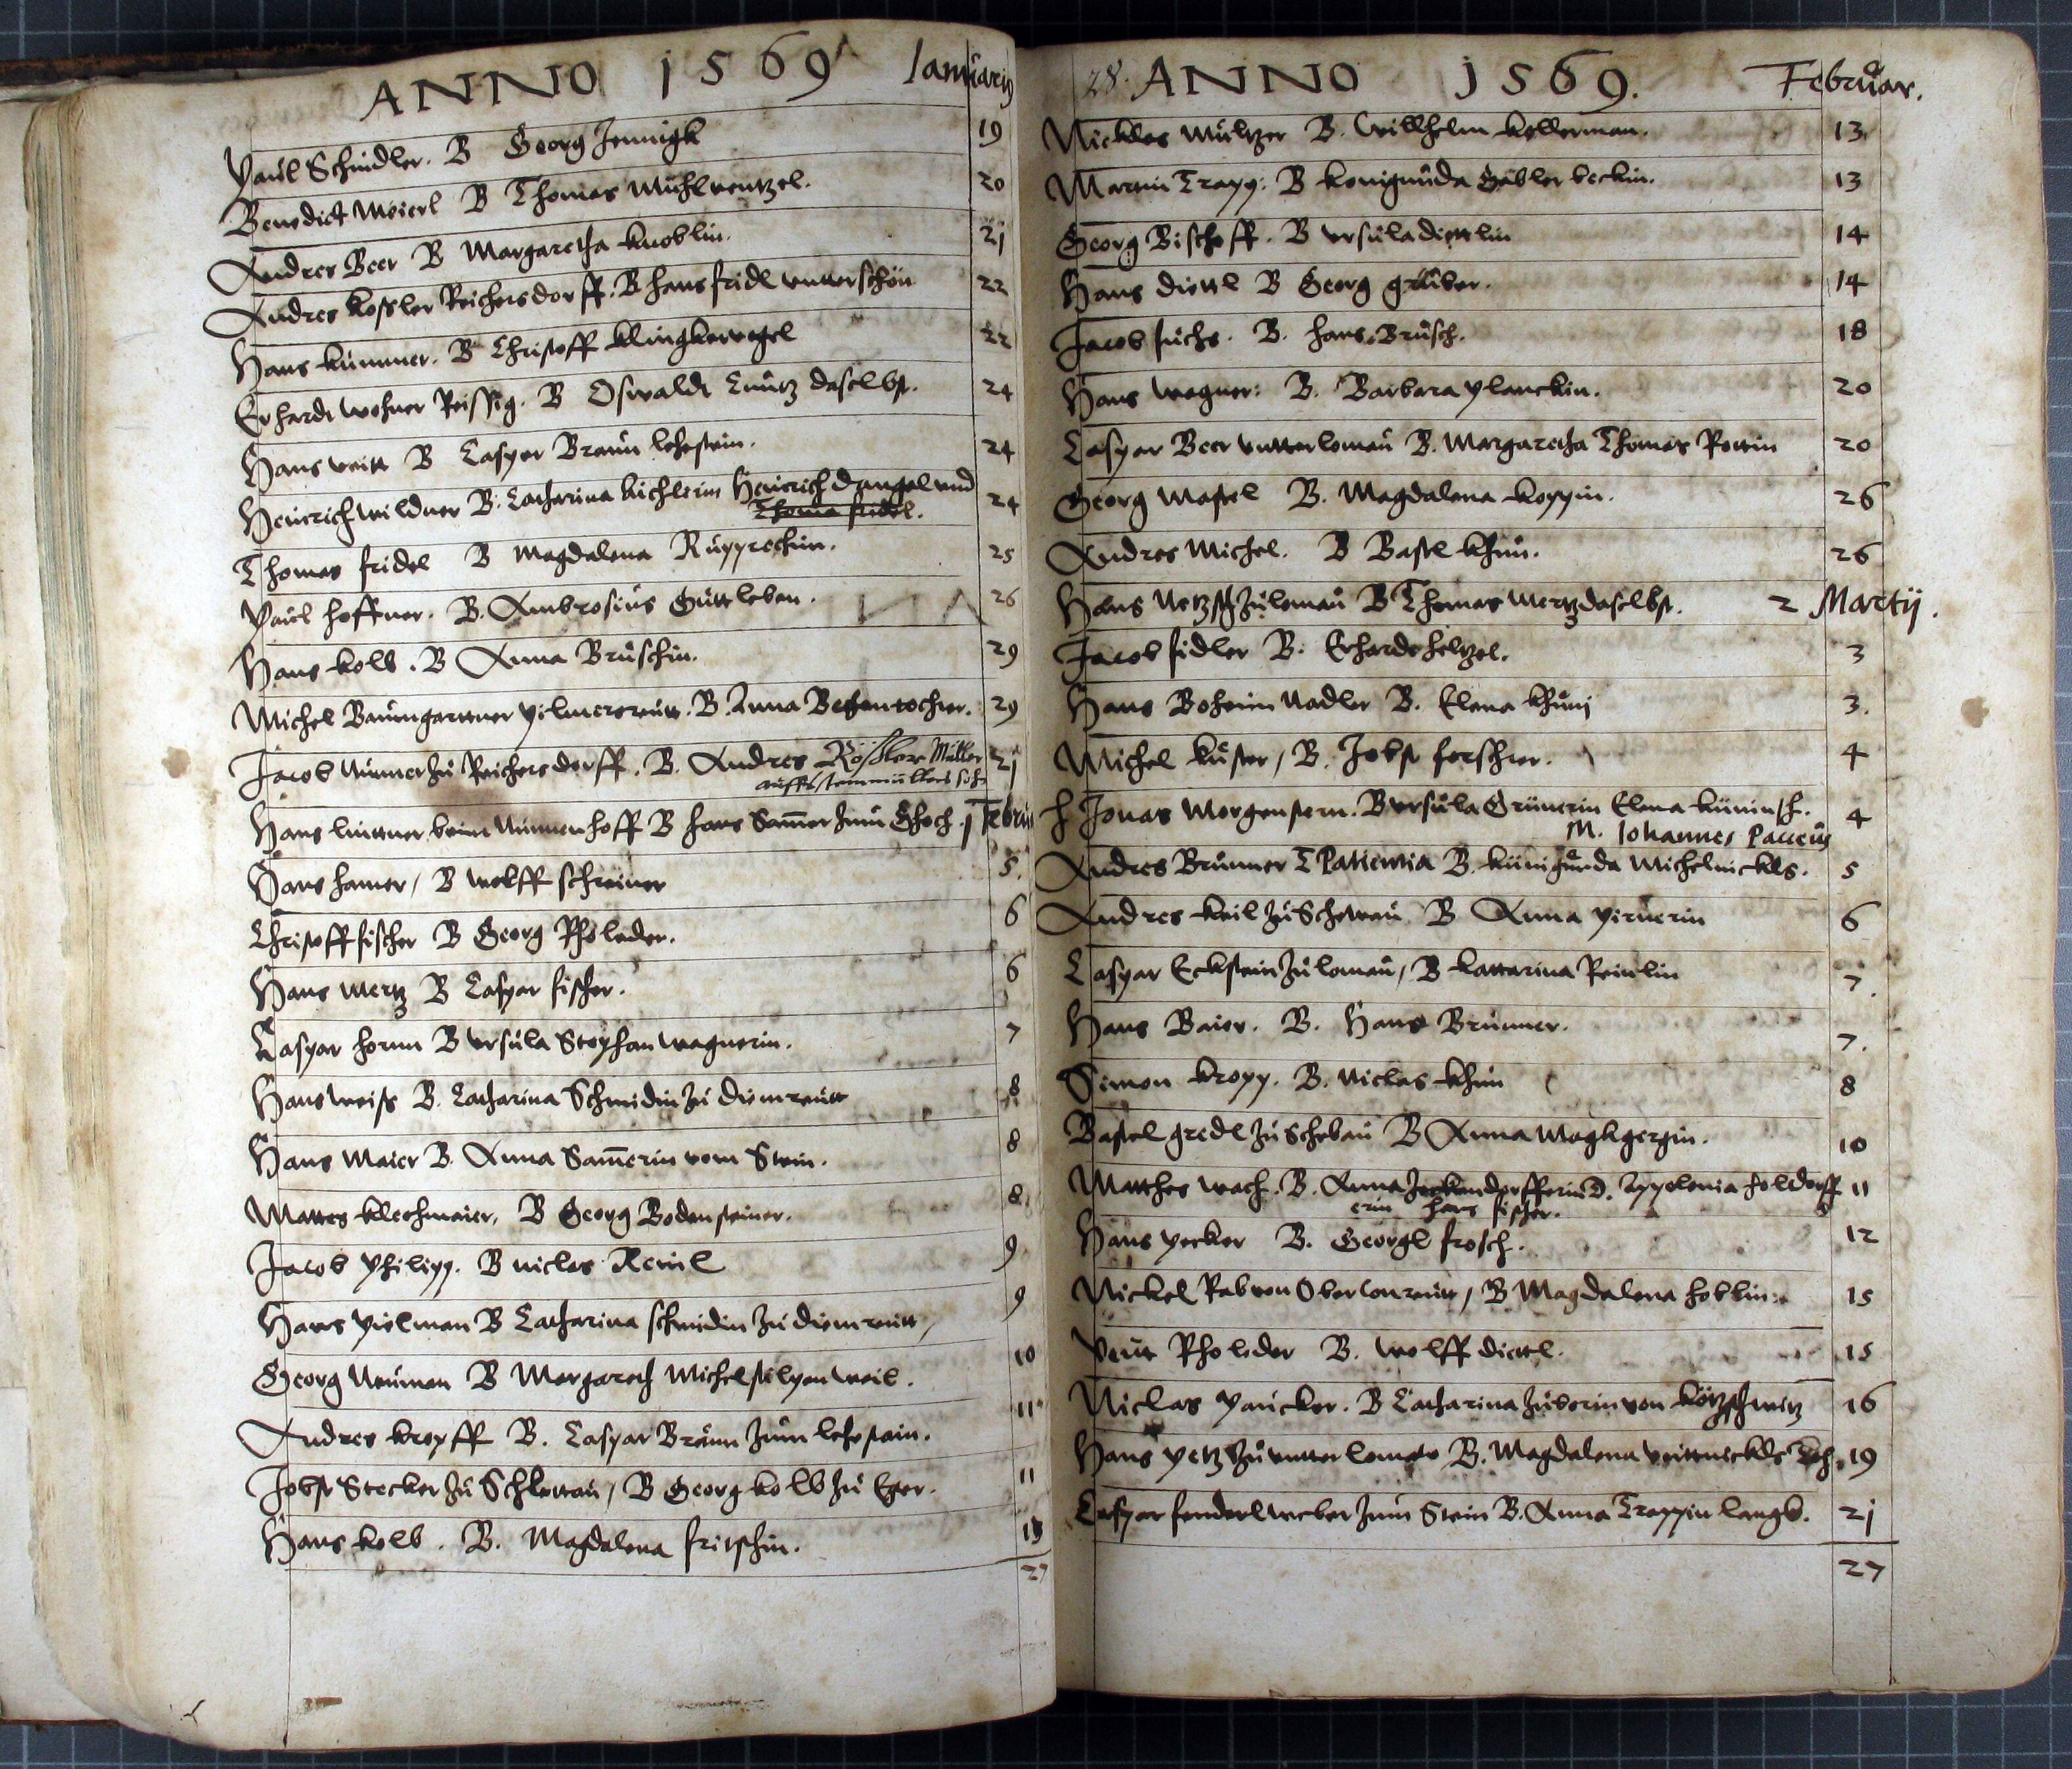 ANNO 1569 Ianuarij
Paul Schindler. B Georg Jennigk 19
Benedict Meierl B Thomas Muhlwentzel. 20
Andres Beer B Margaretha knoblin. 21
Andres kosler Reichersdorff. B hans fridl unterschön 22
Hans kummer. B Christoff klingkervogel 22
Erhardt wohner Reissig. B Oswaldt Cuntz daselbst. 24
Hans veitt B Caspar Braun lehestein. 24
Heinrich wildner B. Catharina küchlerin Heinrich dangel und 24
Thoma fridel.
Thomas fridel B Magdalena Rupprechtin. 25
Paul hoffner. B. Ambrosius Guttleben. 26
Hans kolb. B Anna Bruschin. 29
Michel Baumgarttner pilmersreut. B. Anna Beckentochter. 29
Jacob Nunner zu Reichersdorff. B. Andres Rößlers Müller 21
auffr stainmüllers sohn
Hans linttner beim Nunnenhoff B hans Sammer zum Ghech. 1 Februa
Hans hamer / B wolff schreiner 5.
Christoff fischer B Georg Rholeder. 6
Hans Mertz B Caspar fischer. 6
Caspar hornn B Ursula Stephan wagnerin. 7
Hans weiss B. Catharina Schmidin zu diemreutt 8
Hans Maier B. Anna Sammerin vom Stein. 8
Mattes klechmaier, B Georg Bodensteiner. 8
Jacob Philipp. B niclas Reinl 9
Hans pielman B Catharina schmidin zu diemreutt / 9
Georg Neuman B Margareth Michel stilpen weib. 10
Andres kropff B. Caspar Braun zum lehestain. 11
Jobst Stecker zu Schlottau / B Georg kolb zu Eger. 11
Hans kolb. B. Magdalena fritschin. 13
27
28. ANNO 1569. Februar.
Nicklas Multzer B. Willhelm kellerman. 13
Martin Trapp. B konigunda Gablerbeckin. 13
Georg Bischoff. B Ursula diettlin 14
Hans diettl B Georg gruber. 14
Jacob fuchs. B. hans Brusch. 18
Hans wagner: B. Barbara planckin. 20
Caspar Beer unterlomau B. Margaretha Thomas Rottin 20
Georg Mastel B. Magdalena koppin. 26
Andres Michel. B Bastl khun. 26
Hans Netzsch zu lomau B Thomas Mertz daselbst. 2 Martij.
Jacob fidler B. Erhardt heltzel. 3
Hans Boheim Nadler B. Elena khuni 3.
Michel kuster / B. Jobst forscher. 4
h Jonas Morgenstern. B Ursula Grünerin Elena küninsch. 4
M. Iohannes Pacceus
Andres Brunner T Patientia B. künigunda Michel nickls. 5
Andres keil zu Schewau B Anna pirnerin 6
Caspar Eckstein zu lomau / B kattarina Reinlin 7.
Hans Baier. B. Hans Brunner. 7.
Simon kropp. B. Niclas khun 8
Bastel gredl zu Schebau B Anna Maglgergin. 10
Matthes wach. B. Anna Jeckendorfferin D. Appelonia holdorff 11
erin hans fischer.
Hans pecker B. Georgl frosch. 12
Nickel Rab von Oberlonreutt / B Magdalena hoblin. 15
Veitt Rholeder B. wolff diettl. 15
Niclas paucker. B Catharina zuberin von kötzschwitz 16
Hans petz zu unterlomato B. Magdalena veittnickls Toch. 19
Caspar fenderl weber zum Stein B. Anna Trappin langk. 21
27